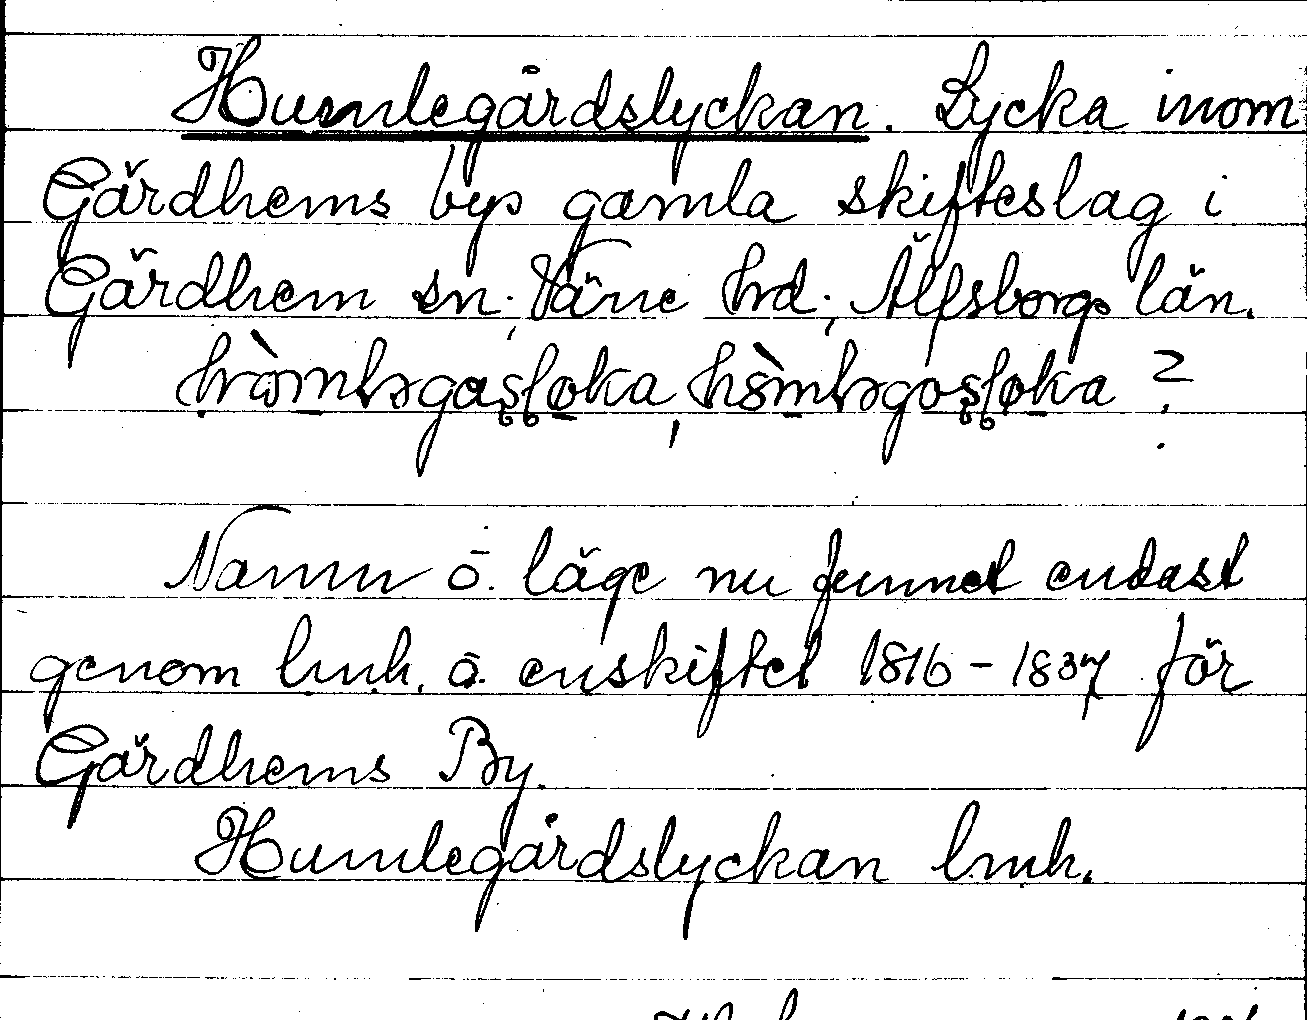 Humlegårdslyckan. Lycka inom
Gärdhems bys gamla skifteslag i
Gärdhem sn, Väne hrd, Älfsborgs län.
?
Namn o. läge nu funnet endast
genom lmh. o. enskiftet 1816-1837 för
Gärdhems By.
Humlegårdslyckan lmh.